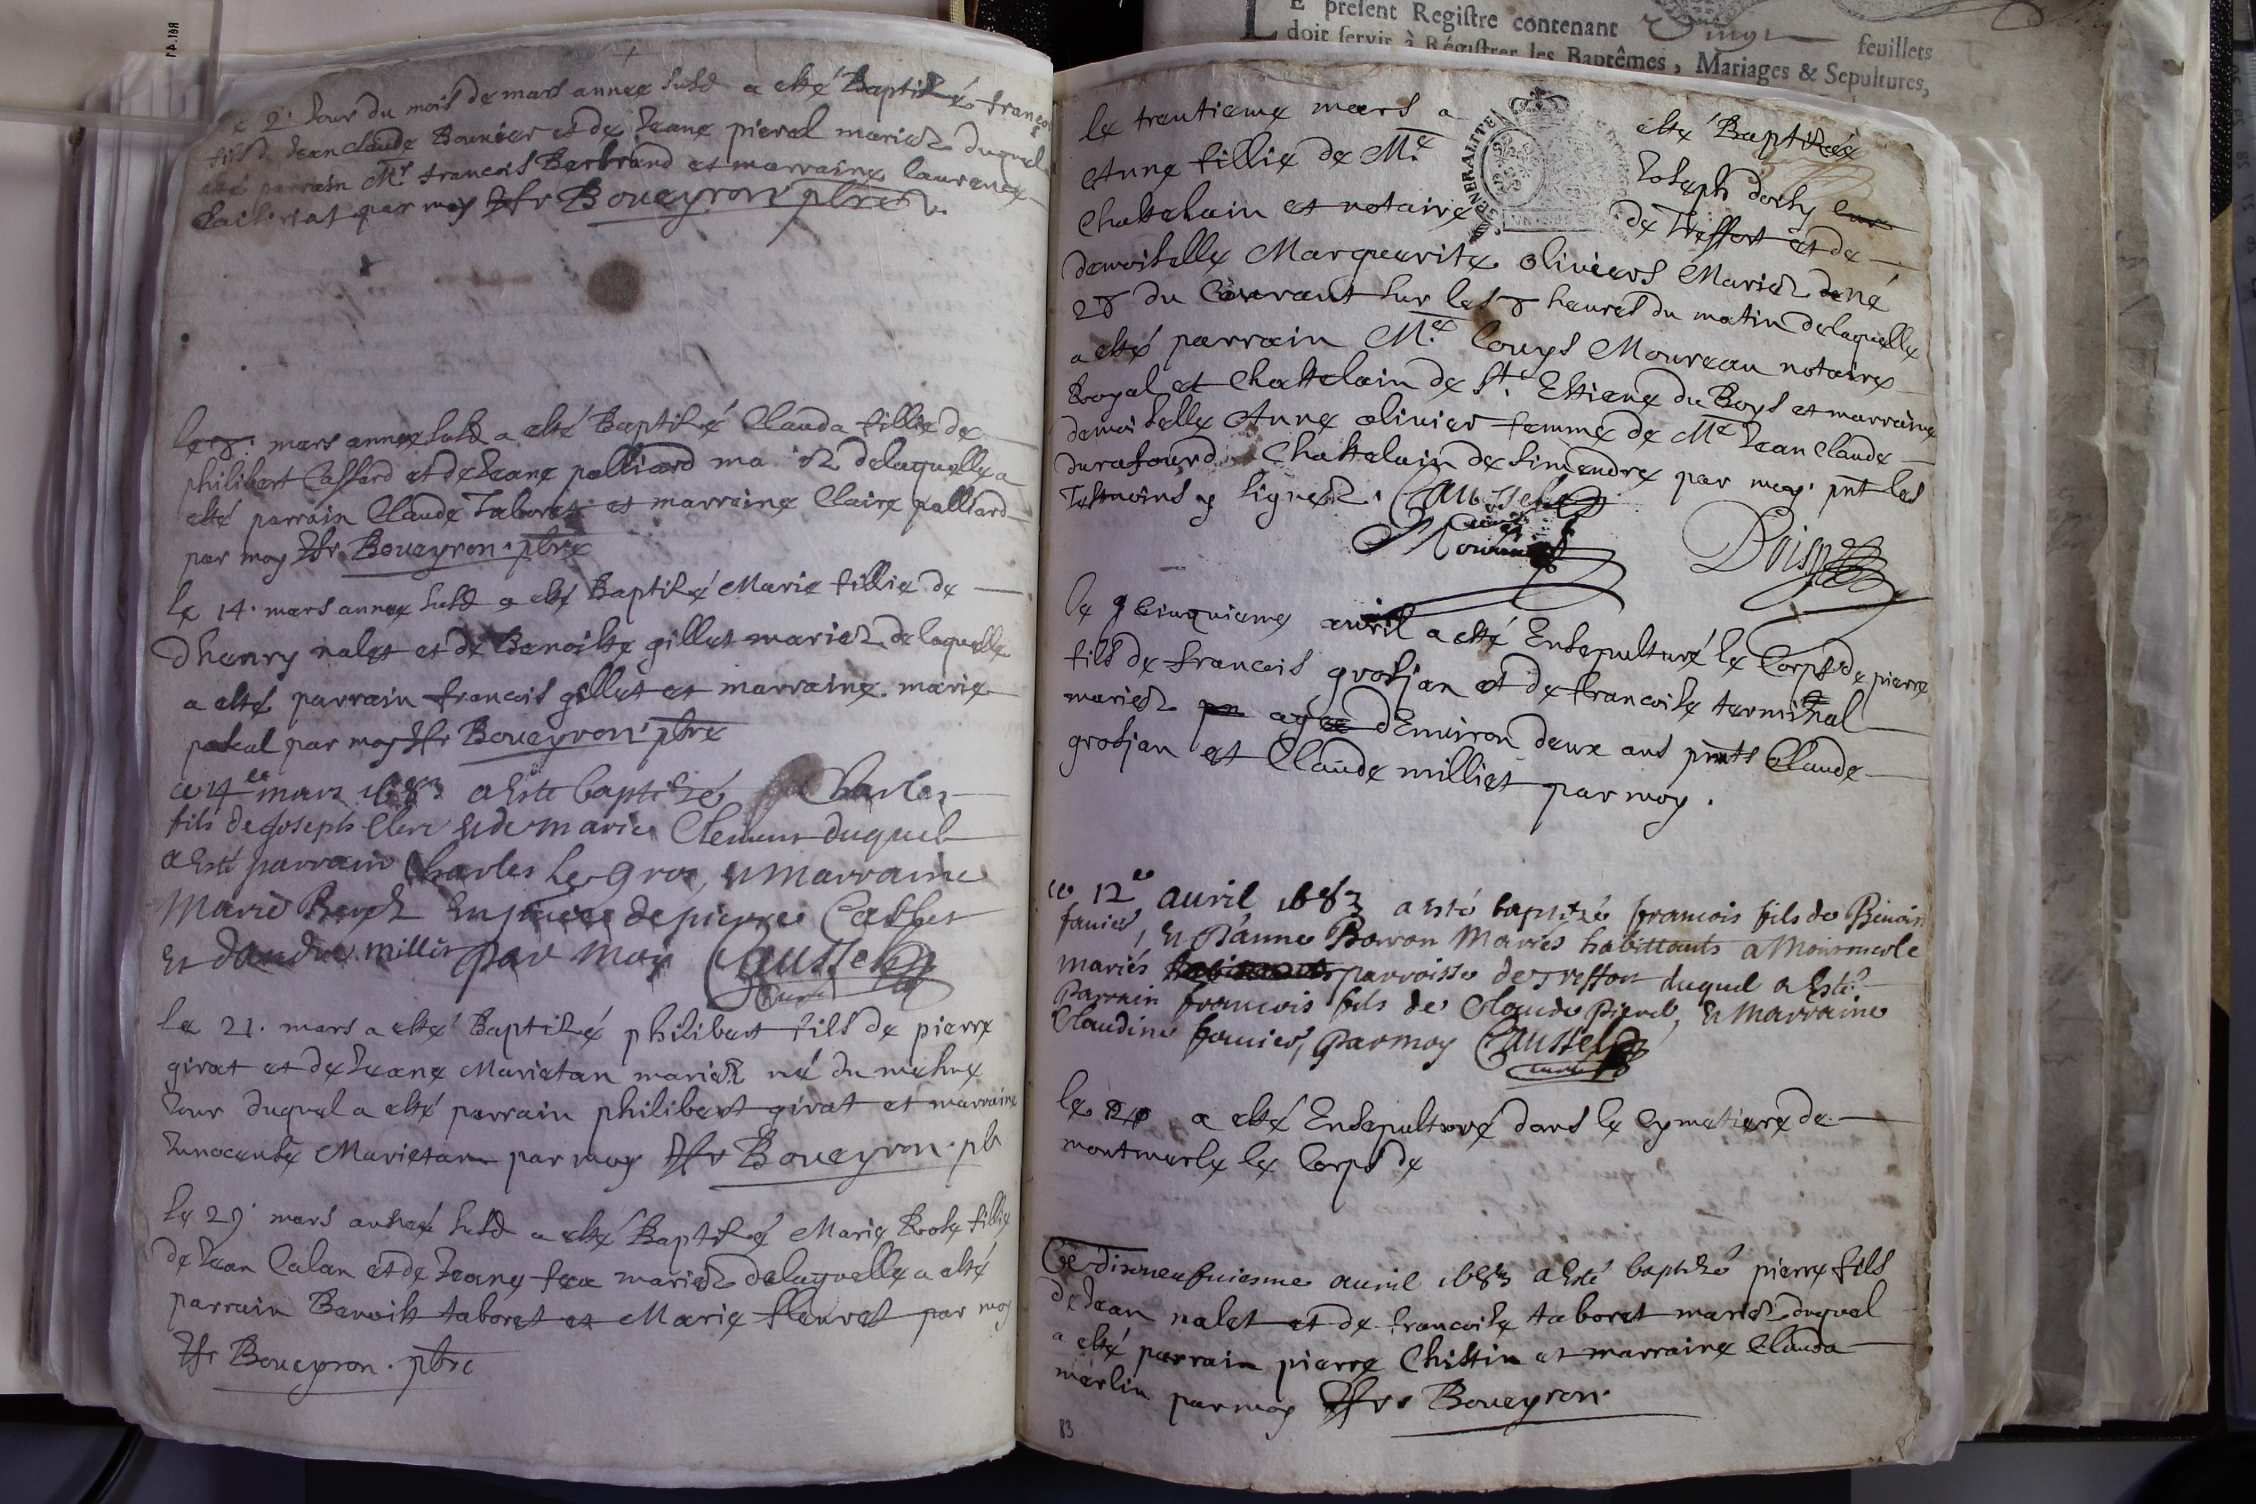 2. Jour du mois de mars annee susd a esté Baptisé françoi
fils d Jean claude Bounier et de Jeane pierel mariez duquel
esté parrain Mr francois Berbrand et marraine laurence
par moy Boueyron pbre
le 8. mars annee susd a esté Baptisé Clauda fillie de
philibert Cassard et de Jeane palliard ma iez delaquelle a
esté parrain Claude Taboret et marraine Claire palliard
par moy Boueyron. pbre
le 14. mars annee susd a esté Baptisé Marie fillie de
Dhenry nalet et de Benoiste gillet mariez delaquelle
a esté parrain francois gillet et marraine marie
pascal par moy Boueyron. pbre
ce 14e mars 1683 a Esté baptizé Charles
fils de Joseph Clerc Et de marie Clement duquel
a Esté parrain Charles le gros, Et marraine
Marie En de pierre Casset
Et millet par moy Caussel
Curé
le 21. mars a esté Baptisé philibert fils de pierre
girat et de Jeane Marietan mariez né du mesme
Jour duquel a esté parrain philibert girat et marraine
Innocente Marietan par moy Boueyron. pb
le 29. mars année susd a esté Baptisé Marie Rose fillie
de Jean Calan et de Jeane fea mariez delaquelle a esté
parrain Benoist taboret et Marie fleuret par moy
Boueyron. pbre
le trentieme mars a esté Baptizée
Anne fillie de Me Joseph dochy
GENERALITE
Chastelain et notaire de Treffort et de
demoiselle Marguerite oliviers Mariez né
28 du Courant sur les 8 heures du matin delaquelle
a esté parrain Me. louys Moureau notaire
Royal et Chastelain de St. Estiene du Boys et marraine
demoiselle Anne olivier femme de Me Jean Claude
durafourd Chastelain de simendre par moy. pnt les
Tesmoins signez. Caussel
curé
le cinquieme avril a esté Ensepulturé le Corps de pierre
fils de francois grosjan et de francoise
mariez agee dEnviron deux ans pnts Claude
grosjan et Claude milliet par moy.
ce 12e avril 1683 a esté baptizé francois fils de Benoit
fanier, Et Mariés habittants a Monmerle
mariés parroisse de Treffort duquel a Esté
Parrain francois fils de Claude Pierel, Et Marraine
Claudine fanier, Par moy Caussel
curé
le a esté Ensepulturé dans le Cymetiere de
montmerle le Corps de
Ce dixneufviesme avril 1683 a Esté baptizé pierre fils
de Jean nalet et de francoise taboret mariez duquel
a esté parrain pierre Chistin et marraine Clauda
merlin par moy Boueyron.
83
E present Registre contenant feuillets
doit servir à Régistrer les Baptêmes, Mariages & Sepultures,